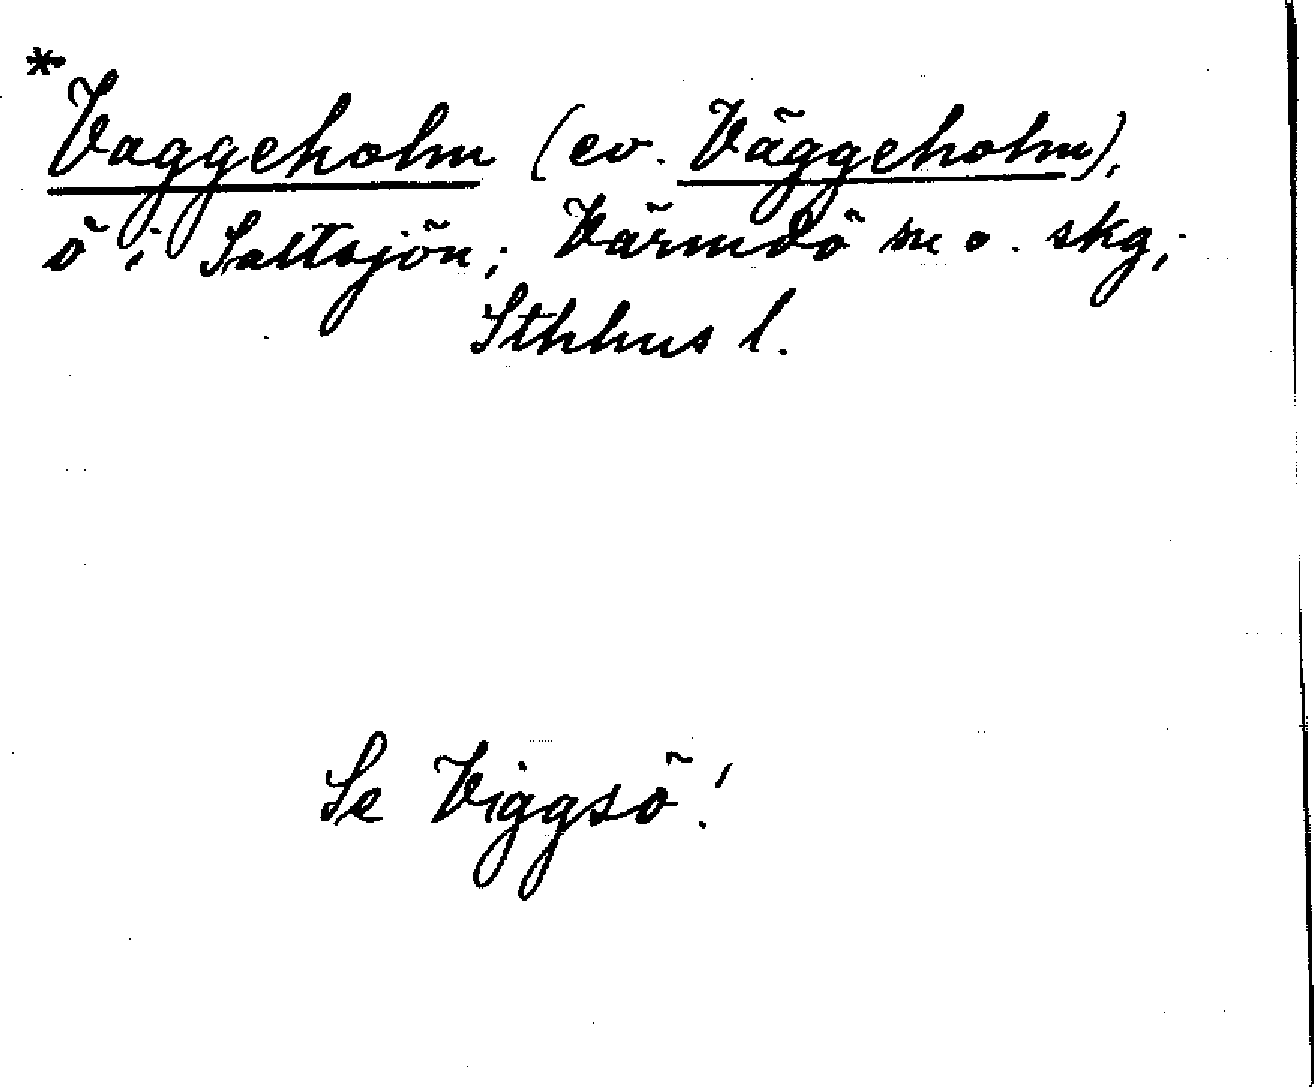 *Vaggeholm (ev. Väggeholm),
ö i Saltsjön; Värmdö sn o. skg,
Sthlms l.
Se Viggsö!